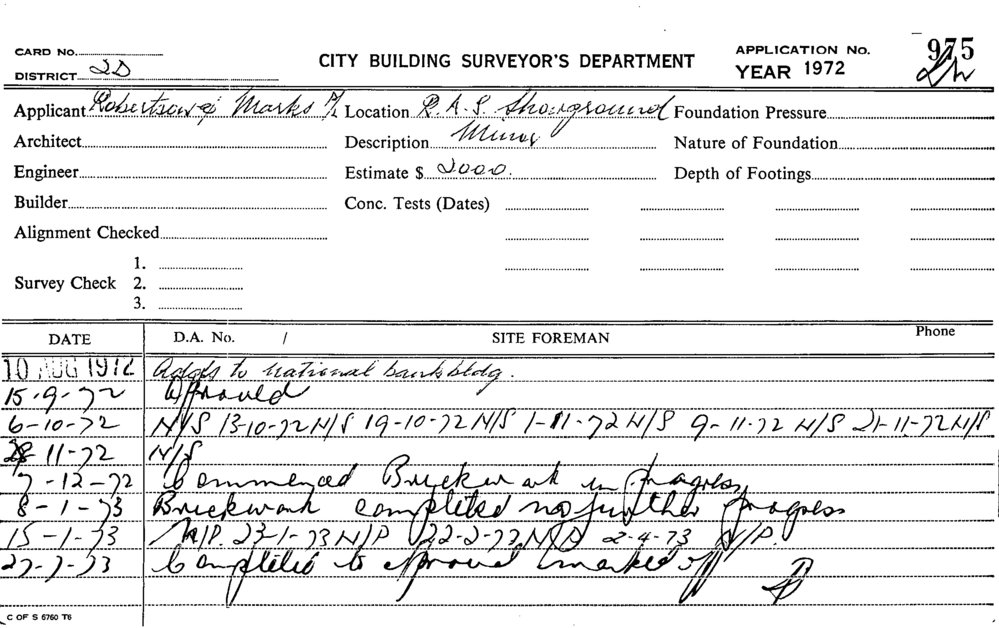 CARD No. CITY BUILDING SURVEYOR'S DEPARTMENT APPLICATION No. 975
DISTRICT 2D YEAR 1972
Applicant Robertson & Marks P/L Location R.A.S. Showground Foundation Pressure
Architect Description Minor Nature of Foundation
Engineer Estimate $ 2000. Depth of Footings
Builder Conc. Tests (Dates)
Alignment Checked
Survey Check 1.
2.
3.
DATE D.A. No. / SITE FOREMAN Phone
10 AUG 1972 Adds to national bank bldg.
15-9-72 Approved
6-10-72 N/S 13-10-72 N/S 19-10-72 N/S 1-11-72 N/S 9-11-72 N/S 21-11-72 N/S
28-11-72 N/S
7-12-72 Commenced Brickwork in progress
8-1-73 Brickwork completed no further progress
15-1-73 N/P. 23-1-73 N/P 22-2-73 N/P 2-4-73 N/P.
27-7-73 Completed to approval marked off
C OF S 6760 T6